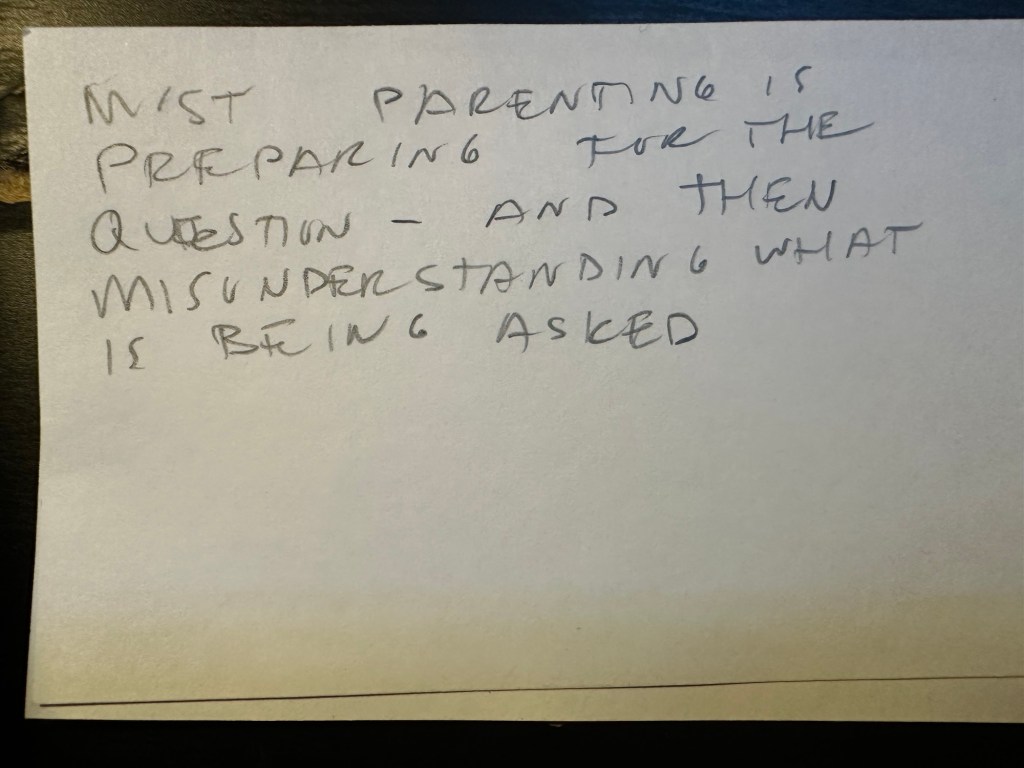 MIST PARENTING IS
PREPARING FOR THE
QUESTION - AND THEN
MISUNDERSTANDING WHAT
IS BEING ASKED